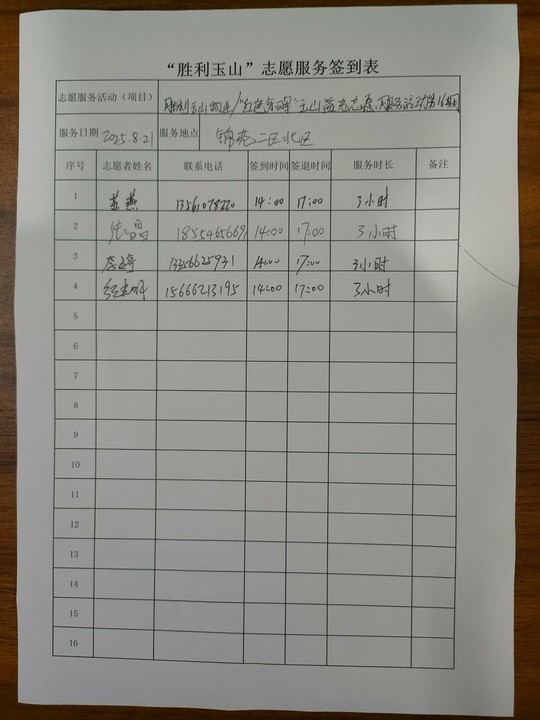 “胜利玉山”志愿服务签到表
志愿服务活动（项目） 胜利玉山物业/“红色 玉山益充志愿服务活动第16期
服务日期 2025.8.21 服务地点 锦苑二区北区
序号 志愿者姓名 联系电话 签到时间 签退时间 服务时长 备注
1 燕 14:00 17:00 3小时
2 张昌 1855465669 14:00 17:00 3小时
3 13356625931 14:00 17:00 3小时
4 15666213195 14:00 17:00 3小时
5
6
7
8
9
10
11
12
13
14
15
16